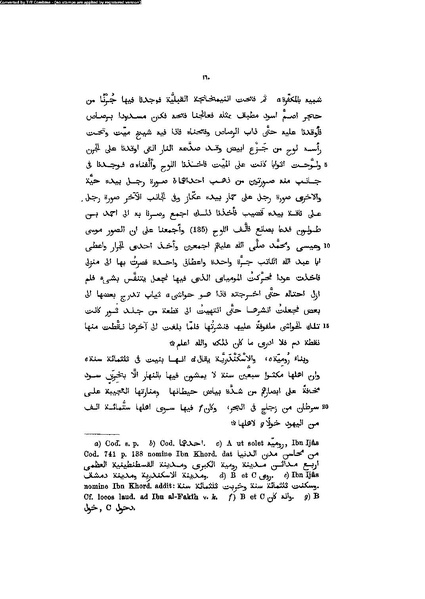 ١٦٠
شبيه بالمكفرة a ثم فتحت النيمخانجة القبلية فوجدنا فيها جرنا من
حجر اصم اسود مطبق بمثله فعالجنا فتحه فكان مسدودا برصاص
فأوقدنا عليه حتى ذاب الرصاص وفتحناه فاذا فيه شيخ ميت وتحت
رأسه لوح من جزع ابيض وقد صدعه النار التى اوقدنا على الجرن
5 ولوحت اثوابا كانت على الميت فأخذنا اللوح وألقيناه فوجدنا فى
جانب منه صورتين من ذهب احداهما b صورة رجل بيده حية
والاخرى صورة رجل على حمار بيده عكاز وفى الجانب الآخر صورة رجل
على ناقة بيده قضيب فأخذنا ذلك اجمع وصرنا به الى احمد بن
طولون فدعا بصانع فألف اللوح (185) وأجمعنا على ان الصور موسى
10 وعيسى ومحمد صلى الله عليهم اجمعين وأخذ احدى الجرار واعطى
ابا عبد الله الكاتب جرة واحدة واعطانى واحدة فصرت بها الى منزلى
فأخذت عودا فحركت الموميائى الذى فيها فجعل يتنفس بشىء فلم
ازل احتاله حتى اخرجته فاذا هو حواشى ثياب تدرج بعضها الى
بعض فجعلت انشرها حتى انتهيت الى قطعة من جلد ثور كانت
15 تلك الحواشى ملفوفة عليها فنشرتها فلما بلغت الى آخرها نقطت منها
نقطة دم فلا ادرى ما كان ذلك والله اعلم
وبناء رومية c، والاسكندرية يقال انها بنيت فى ثلثمائة سنة
وان اهلها مكثوا سبعين سنة لا يمشون فيها بالنهار الا بخرق سود
مخافة على ابصارهم من شدة بياض حيطانها ومنارتها العجيبة على
20 سرطان من زجاج فى البحر، وكان f فيها سوى اهلها ستمائة الف
من اليهود خولا g لاهلها
a) Cod. s. p. b) Cod. احدهما. c) A ut solet روميه, Ibn Ijâs
Cod. 741 p. 188 nomine Ibn Khord. dat من محاسن مدن الدنيا
اربع مدائن مدينة رومية الكبرى ومدينة القسطنطينية العظمى
ومدينة الاسكندرية ومدينة دمشق. d) B et C روى. e) Ibn Ijâs
nomine Ibn Khord. addit: وسكنت ثلثمائة سنة وخربت ثلثمائة سنة.
Cf. locos laud. ad Ibn al-Fakîh v. k. f) B et C وانه كان. g) B
خول, C دحول.
Converted by Tiff Combine - (no stamps are applied by registered version)